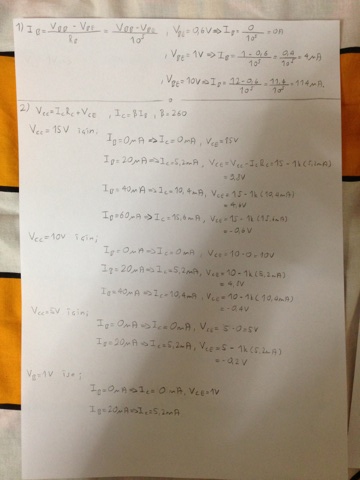 1) I_B = (V_BB - V_BE)/R_B = (V_BB - V_BE)/10⁵ , V_BE = 0,6V ⇒ I_B = 0/10⁵ = 0A
, V_BB = 1V ⇒ I_B = (1 - 0,6)/10⁵ = 0,4/10⁵ = 4μA
, V_BB = 12V ⇒ I_B = (12 - 0,6)/10⁵ = 11,4/10⁵ = 114μA,
2) V_CC = I_C R_C + V_CE , I_C = β I_B , β = 260
V_CC = 15V için;
I_B = 0μA ⇒ I_C = 0mA , V_CE = 15V
I_B = 20μA ⇒ I_C = 5,2mA , V_CE = V_CC - I_C R_C = 15 - 1k(5,2mA)
= 9,8V
I_B = 40μA ⇒ I_C = 10,4mA , V_CE = 15 - 1k(10,4mA)
= 4,6V
I_B = 60μA ⇒ I_C = 15,6mA , V_CE = 15 - 1k(15,6mA)
= -0,6V
V_CC = 10V için;
I_B = 0μA ⇒ I_C = 0mA , V_CE = 10 - 0 = 10V
I_B = 20μA ⇒ I_C = 5,2mA , V_CE = 10 - 1k(5,2mA)
= 4,8V
I_B = 40μA ⇒ I_C = 10,4mA , V_CE = 10 - 1k(10,4mA)
= -0,4V
V_CC = 5V için;
I_B = 0μA ⇒ I_C = 0mA , V_CE = 5 - 0 = 5V
I_B = 20μA ⇒ I_C = 5,2mA , V_CE = 5 - 1k(5,2mA)
= -0,2V
V_B = 1V için;
I_B = 0μA ⇒ I_C = 0mA , V_CE = 1V
I_B = 20μA ⇒ I_C = 5,2mA